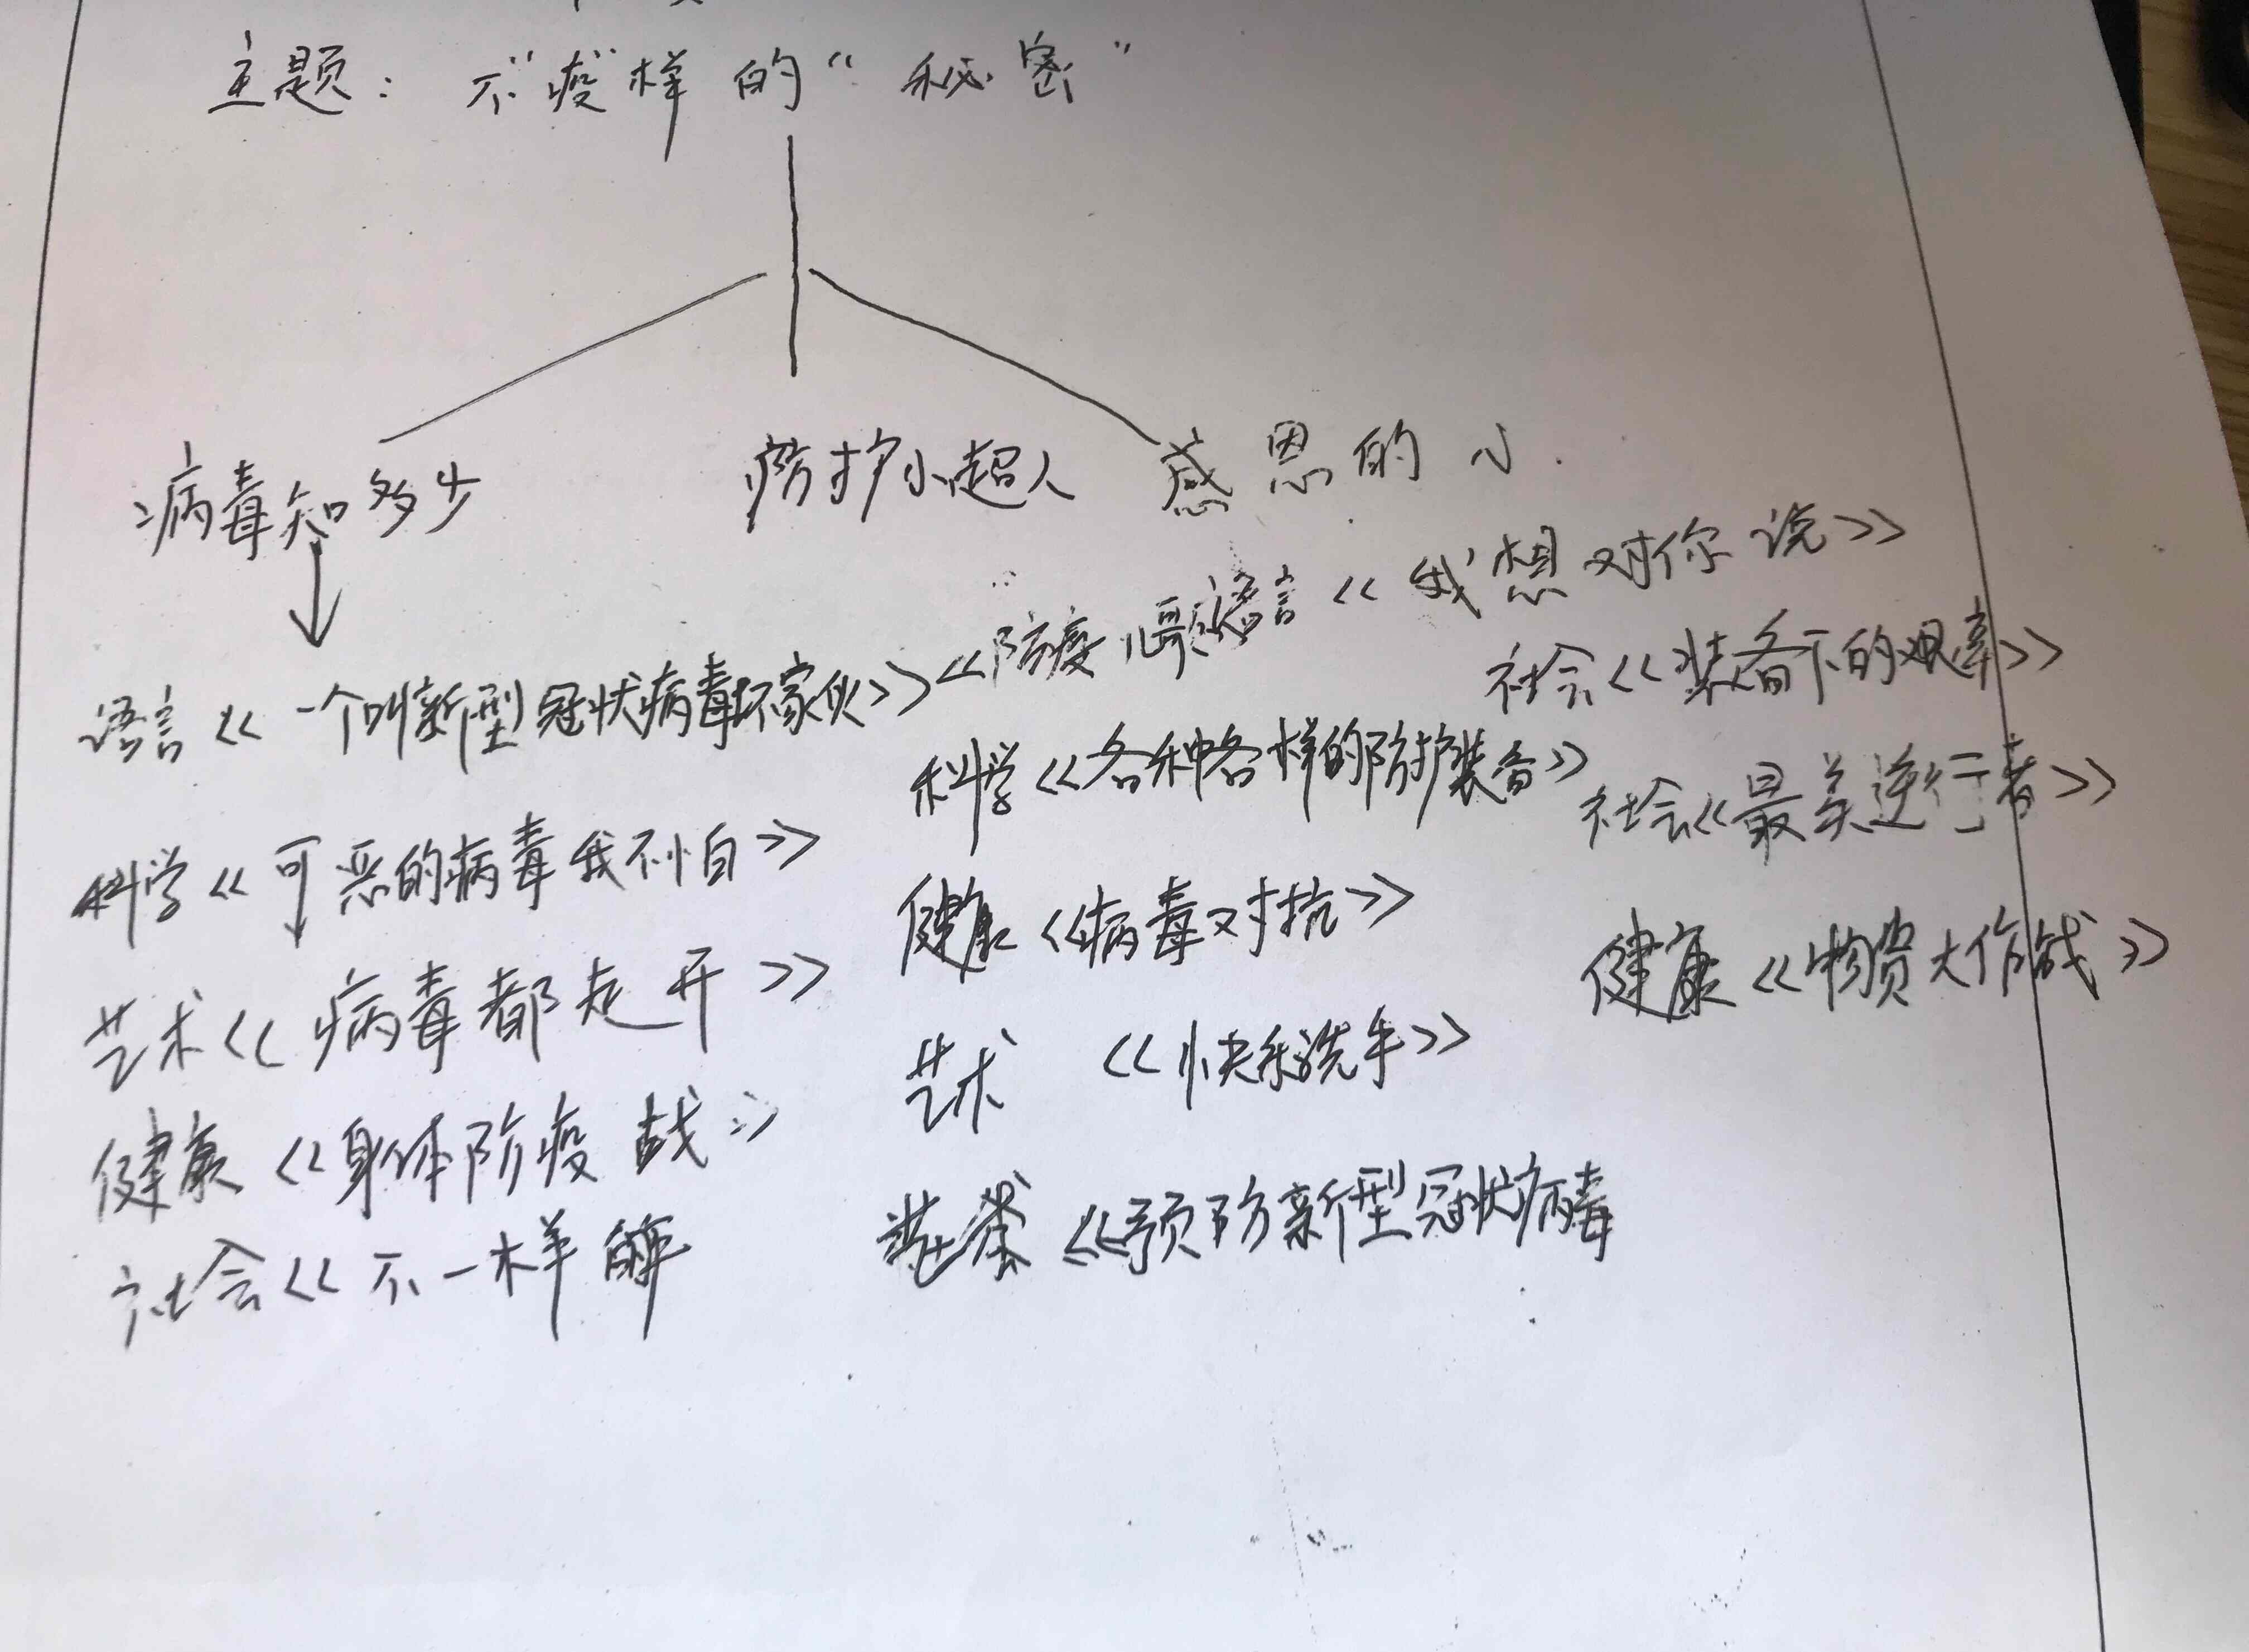 主题：不“疫”样的“秘密”
病毒知多少
防护小超人
感恩的心
语言《一个叫新型冠状病毒坏家伙》
科学《可恶的病毒我不怕》
艺术《病毒都走开》
健康《身体防疫战》
社会《不一样的年
《防疫儿歌》
科学《各种各样的防护装备》
健康《病毒对抗》
艺术 《快乐洗手》
《预防新型冠状病毒
语言《我想对你说》
社会《装备下的艰辛》
社会《最美逆行者》
健康《物资大作战》